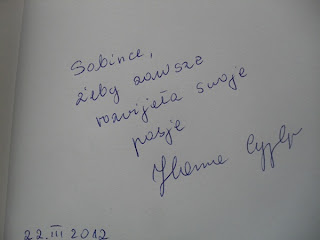 Sabince,
żeby zawsze
rozwijała swoje
pasje
22.III 2012